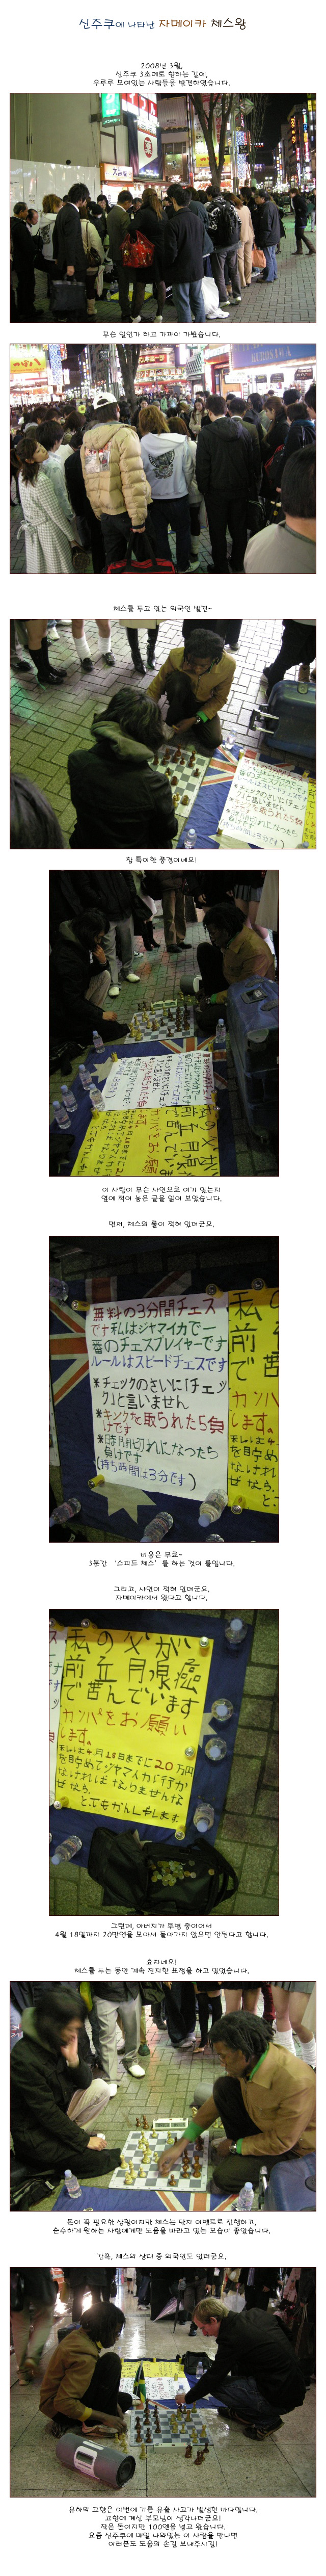 신주쿠에 나타난 자메이카 체스왕
2008년 3월,
신주쿠 3초메로 향하는 길에,
우루루 모여있는 사람들을 발견하였습니다.
무슨 일인가 하고 가까이 가봤습니다.
체스를 두고 있는 외국인 발견~
チェックのさいに「チェッ
ク」と言いません
キングを取られたら
になったら
は3分です)
참 특이한 풍경이네요!
이 사람이 무슨 사연으로 여기 있는지
옆에 적어 놓은 글을 읽어 보았습니다.
먼저, 체스의 룰이 적혀 있더군요.
無料の3分間チェス
です私はジャマイカで一
番のチェスプレイヤーです
ルールはスピードチェスです
*チェックのさいに「チェッ
ク」と言いません
*キングを取られたら負
けです
*時間切れになつたら
負けです
(持ち時間は3分です)
비용은 무료~
3분간 '스피드 체스' 를 하는 것이 룰입니다.
그리고, 사연이 적혀 있더군요.
자메이카에서 왔다고 합니다.
私の父が
前立月泉癌
で苦んでいます
カンパをお願い
します。
私は4月18日までに20万円
を貯めてジャマイカに行か
なければなりませんな
ぜなら、
とてもかんしゃします
그런데, 아버지가 투병 중이어서
4월 18일까지 20만엔을 모아서 돌아가지 않으면 안된다고 합니다.
효자네요!
체스를 두는 동안 계속 진지한 표정을 하고 있었습니다.
돈이 꼭 필요한 상황이지만 체스는 단지 이벤트로 진행하고,
순수하게 원하는 사람에게만 도움을 바라고 있는 모습이 좋았습니다.
간혹, 체스의 상대 중 외국인도 있더군요.
유하의 고향은 이번에 기름 유출 사고가 발생한 바다입니다.
고향에 계신 부모님이 생각나더군요!
작은 돈이지만 100엔을 넣고 왔습니다.
요즘 신주쿠에 매일 나와있는 이 사람을 만나면
여러분도 도움의 손길 보내주시길!